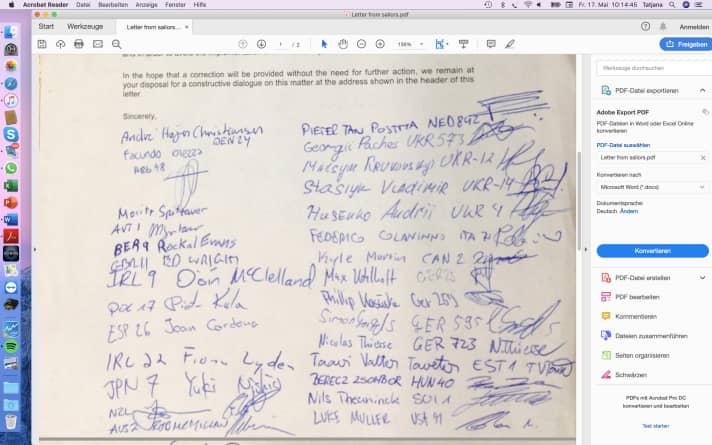 Acrobat Reader Datei Bearbeiten Anzeige Fenster Hilfe
Fr. 17. Mai 10:14:45 Tatjana
Letter from sailors.pdf
Start Werkzeuge Letter from sailors....
Anmelden
1 / 2
Freigeben
In the hope that a correction will be provided without the need for further action, we remain at
your disposal for a constructive dialogue on this matter at the address shown in the header of this
letter
Sincerely,
André Højen Christiansen
DEN 24
Facundo
ARG 48
Moritz Spitzauer
AUT 1
BER 9 Rockal Evans
GBR 11 ED WRIGHT
IRL 9 Oisín McClelland
POL 17 Piotr Kula
ESP 26 Joan Cardona
IRL 22 Fionn Lyden
JPN 7 Yuki Nishio
NZL
AUS 2
PIETER JAN POSTMA NED 842
Georgii Paches UKR 573
Maksym UKR-12
Stasiuk Vladimir UKR-14
Husenko Andrii UKR 4
FEDERICO COLANINNO ITA
Kyle Martin CAN 2
Max Kohlhoff
Phillip Ger 259
Simon GER 595
Nicolas Thiese GER 723 N.Thiese
Taavi Valter Taveter EST 1
BERECZ ZSOMBOR HUN 40
Nils Theuninck SUI 1
LUKE MULLER USA 91
Werkzeuge durchsuchen
PDF-Datei exportieren
Adobe Export PDF
PDF-Dateien in Word oder Excel Online
konvertieren
PDF-Datei auswählen
Letter from sailors.pdf
Konvertieren nach
Microsoft Word (*.docx)
Dokumentsprache:
Deutsch Ändern
Konvertieren
PDF-Datei erstellen
PDF bearbeiten
Kommentieren
Dateien zusammenführen
Seiten organisieren
Schwärzen
PDFs mit Acrobat Pro DC
konvertieren und bearbeiten
Test starten